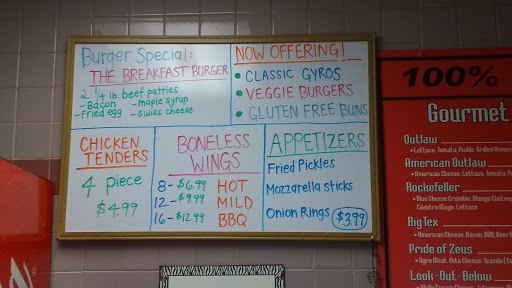 Burger Special:
THE BREAKFAST BURGER
2 1/4 lb. beef patties
-Bacon -maple syrup
-Fried egg -swiss cheese
NOW OFFERING!
• CLASSIC GYROS
• VEGGIE BURGERS
• GLUTEN FREE BUNS
CHICKEN
TENDERS
4 piece
$4.99
BONELESS
WINGS
8-$6.99 HOT
12-$9.99 MILD
16-$12.99 BBQ
APPETIZERS
Fried Pickles
Mozzarella sticks
Onion Rings $3.99
100%
Gourmet
Outlaw
• Lettuce, Tomato, Pickle, Grilled Onions
American Outlaw
• American Cheese, Lettuce, Tomato,
Rockefeller
• Blue Cheese Crumble, Mango Chutney
Cilantro Mayo, Lettuce
Big Tex
• American Cheese, Bacon, BBQ,
Pride of Zeus
• Gyro Meat, Feta Cheese, Tzatziki
Look-Out-Below